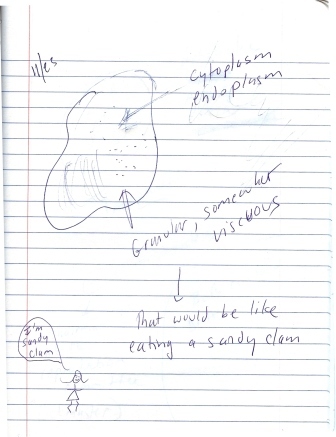 11/25
cytoplasm
endoplasm
Granular, somewhat
viscuous
That would be like
eating a sandy clam
I'm
sandy
clam